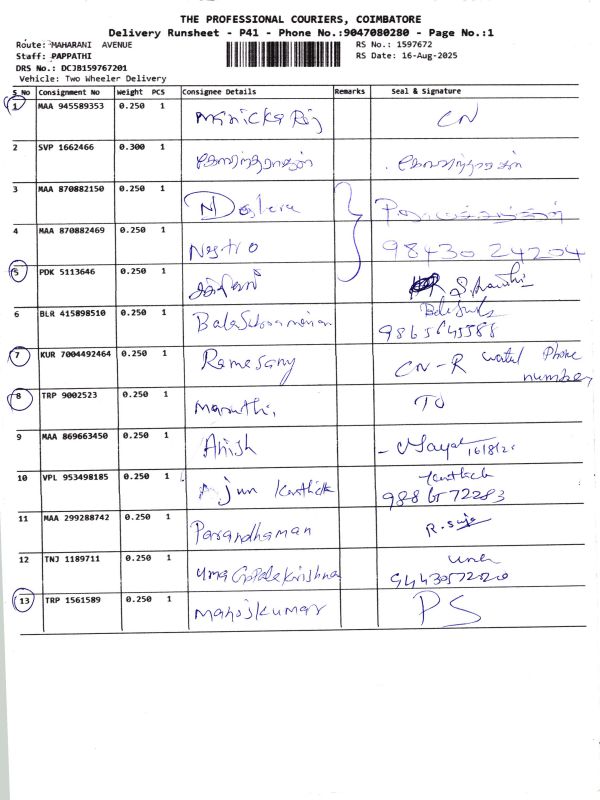 THE PROFESSIONAL COURIERS, COIMBATORE
Delivery Runsheet - P41 - Phone No.:9047080280 - Page No.:1
Route: MAHARANI AVENUE
RS No.: 1597672
Staff: PAPPATHI
RS Date: 16-Aug-2025
DRS No.: DCJB159767201
Vehicle: Two Wheeler Delivery
S No Consignment No Weight PCS Consignee Details Remarks Seal & Signature
1 MAA 945589353 0.250 1 Manickaraj CN
2 SVP 1662466 0.300 1 கோவிந்தராஜன் கோவிந்தராஜன்
3 MAA 870882150 0.250 1
4 MAA 870882469 0.250 1 98430 24204
5 PDK 5113646 0.250 1
6 BLR 415898510 0.250 1 BalaSubramanian
9865645588
7 KUR 7004492464 0.250 1 Ramesamy CN-R Phone
number
8 TRP 9002523 0.250 1 Maruthi
9 MAA 869663450 0.250 1 Anish 16/8/25
10 VPL 953498185 0.250 1 Arjun Karthick Karthick
11 MAA 299288742 0.250 1 Parandhaman R. Suja
12 TNJ 1189711 0.250 1 Uma GopalaKrishna Uma
94430572020
13 TRP 1561589 0.250 1 Manojkumar PS